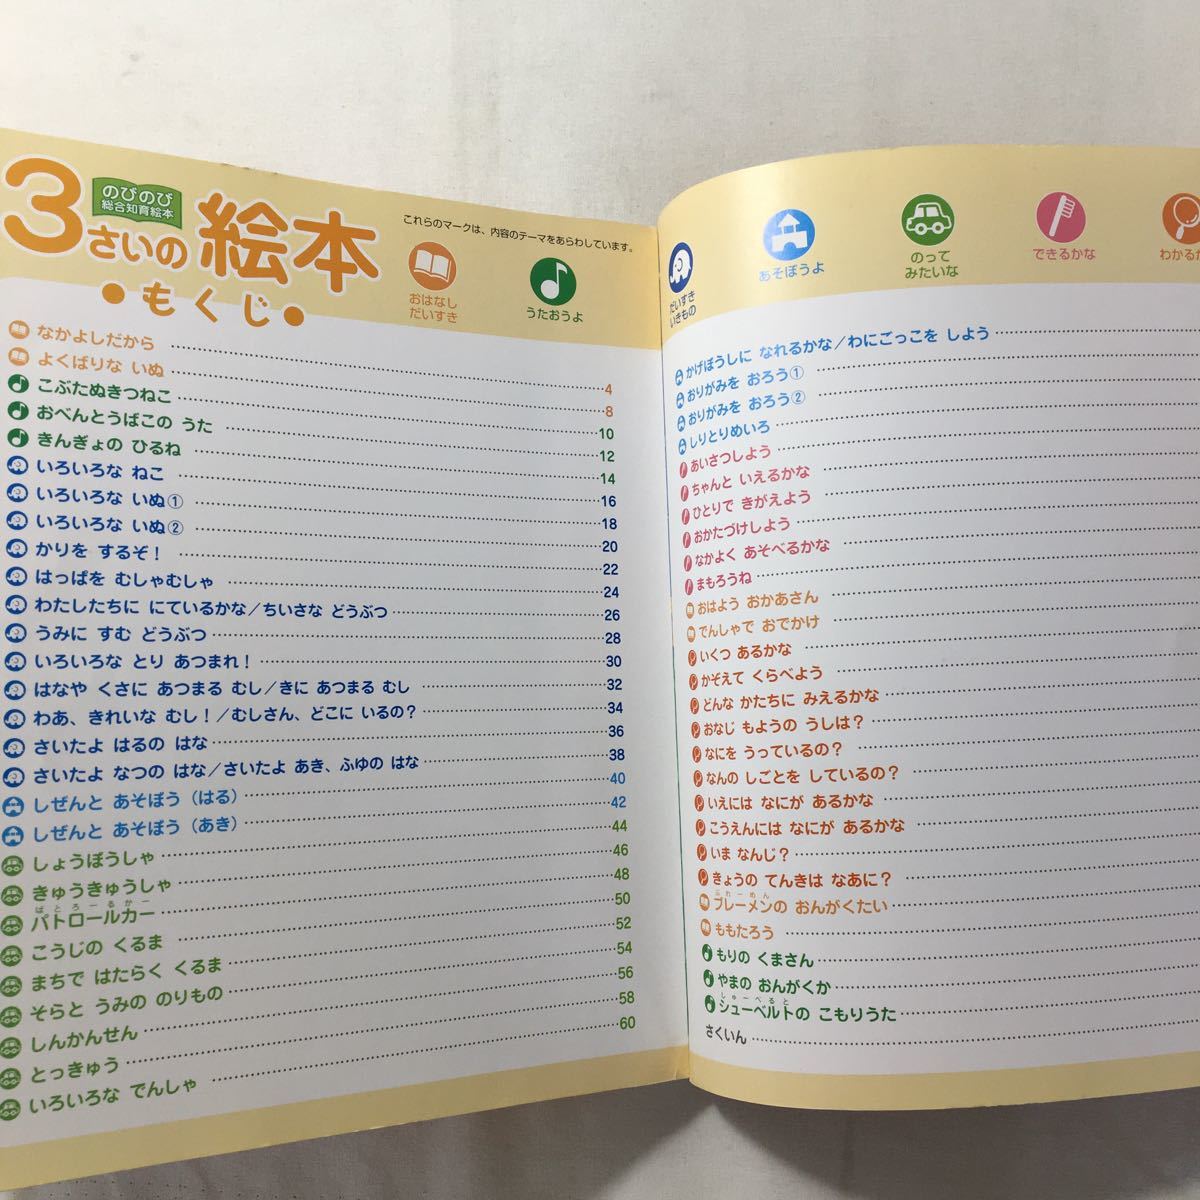 3さいの絵本
のびのび
総合知育絵本
●もくじ●
これらのマークは、内容のテーマをあらわしています。
おはなし
だいすき
うたおうよ
なかよしだから 4
よくばりな いぬ 8
こぶたぬきつねこ 10
おべんとうばこの うた 12
きんぎょの ひるね 14
いろいろな ねこ 16
いろいろな いぬ① 18
いろいろな いぬ② 20
かりを するぞ！ 22
はっぱを むしゃむしゃ 24
わたしたちに にているかな／ちいさな どうぶつ 26
うみに すむ どうぶつ 28
いろいろな とり あつまれ！ 30
はなや くさに あつまる むし／きに あつまる むし 32
わあ、きれいな むし！／むしさん、どこに いるの？ 34
さいたよ はるの はな 36
さいたよ なつの はな／さいたよ あき、ふゆの はな 38
しぜんと あそぼう（はる） 40
しぜんと あそぼう（あき） 42
しょうぼうしゃ 44
きゅうきゅうしゃ 46
ぱとろーるかー
パトロールカー 48
こうじの くるま 50
まちで はたらく くるま 52
そらと うみの のりもの 54
しんかんせん 56
とっきゅう 58
いろいろな でんしゃ 60
だいすき
いきもの
あそぼうよ
のって
みたいな
できるかな
わかるか
かげぼうしに なれるかな／わにごっこを しよう
おりがみを おろう①
おりがみを おろう②
しりとりめいろ
あいさつしよう
ちゃんと いえるかな
ひとりで きがえよう
おかたづけしよう
なかよく あそべるかな
まもろうね
おはよう おかあさん
でんしゃで おでかけ
いくつ あるかな
かぞえて くらべよう
どんな かたちに みえるかな
おなじ もようの うしは？
なにを うっているの？
なんの しごとを しているの？
いえには なにが あるかな
こうえんには なにが あるかな
いま なんじ？
きょうの てんきは なあに？
ぶれーめん
ブレーメンの おんがくたい
ももたろう
もりの くまさん
やまの おんがくか
しゅーべると
シューベルトの こもりうた
さくいん